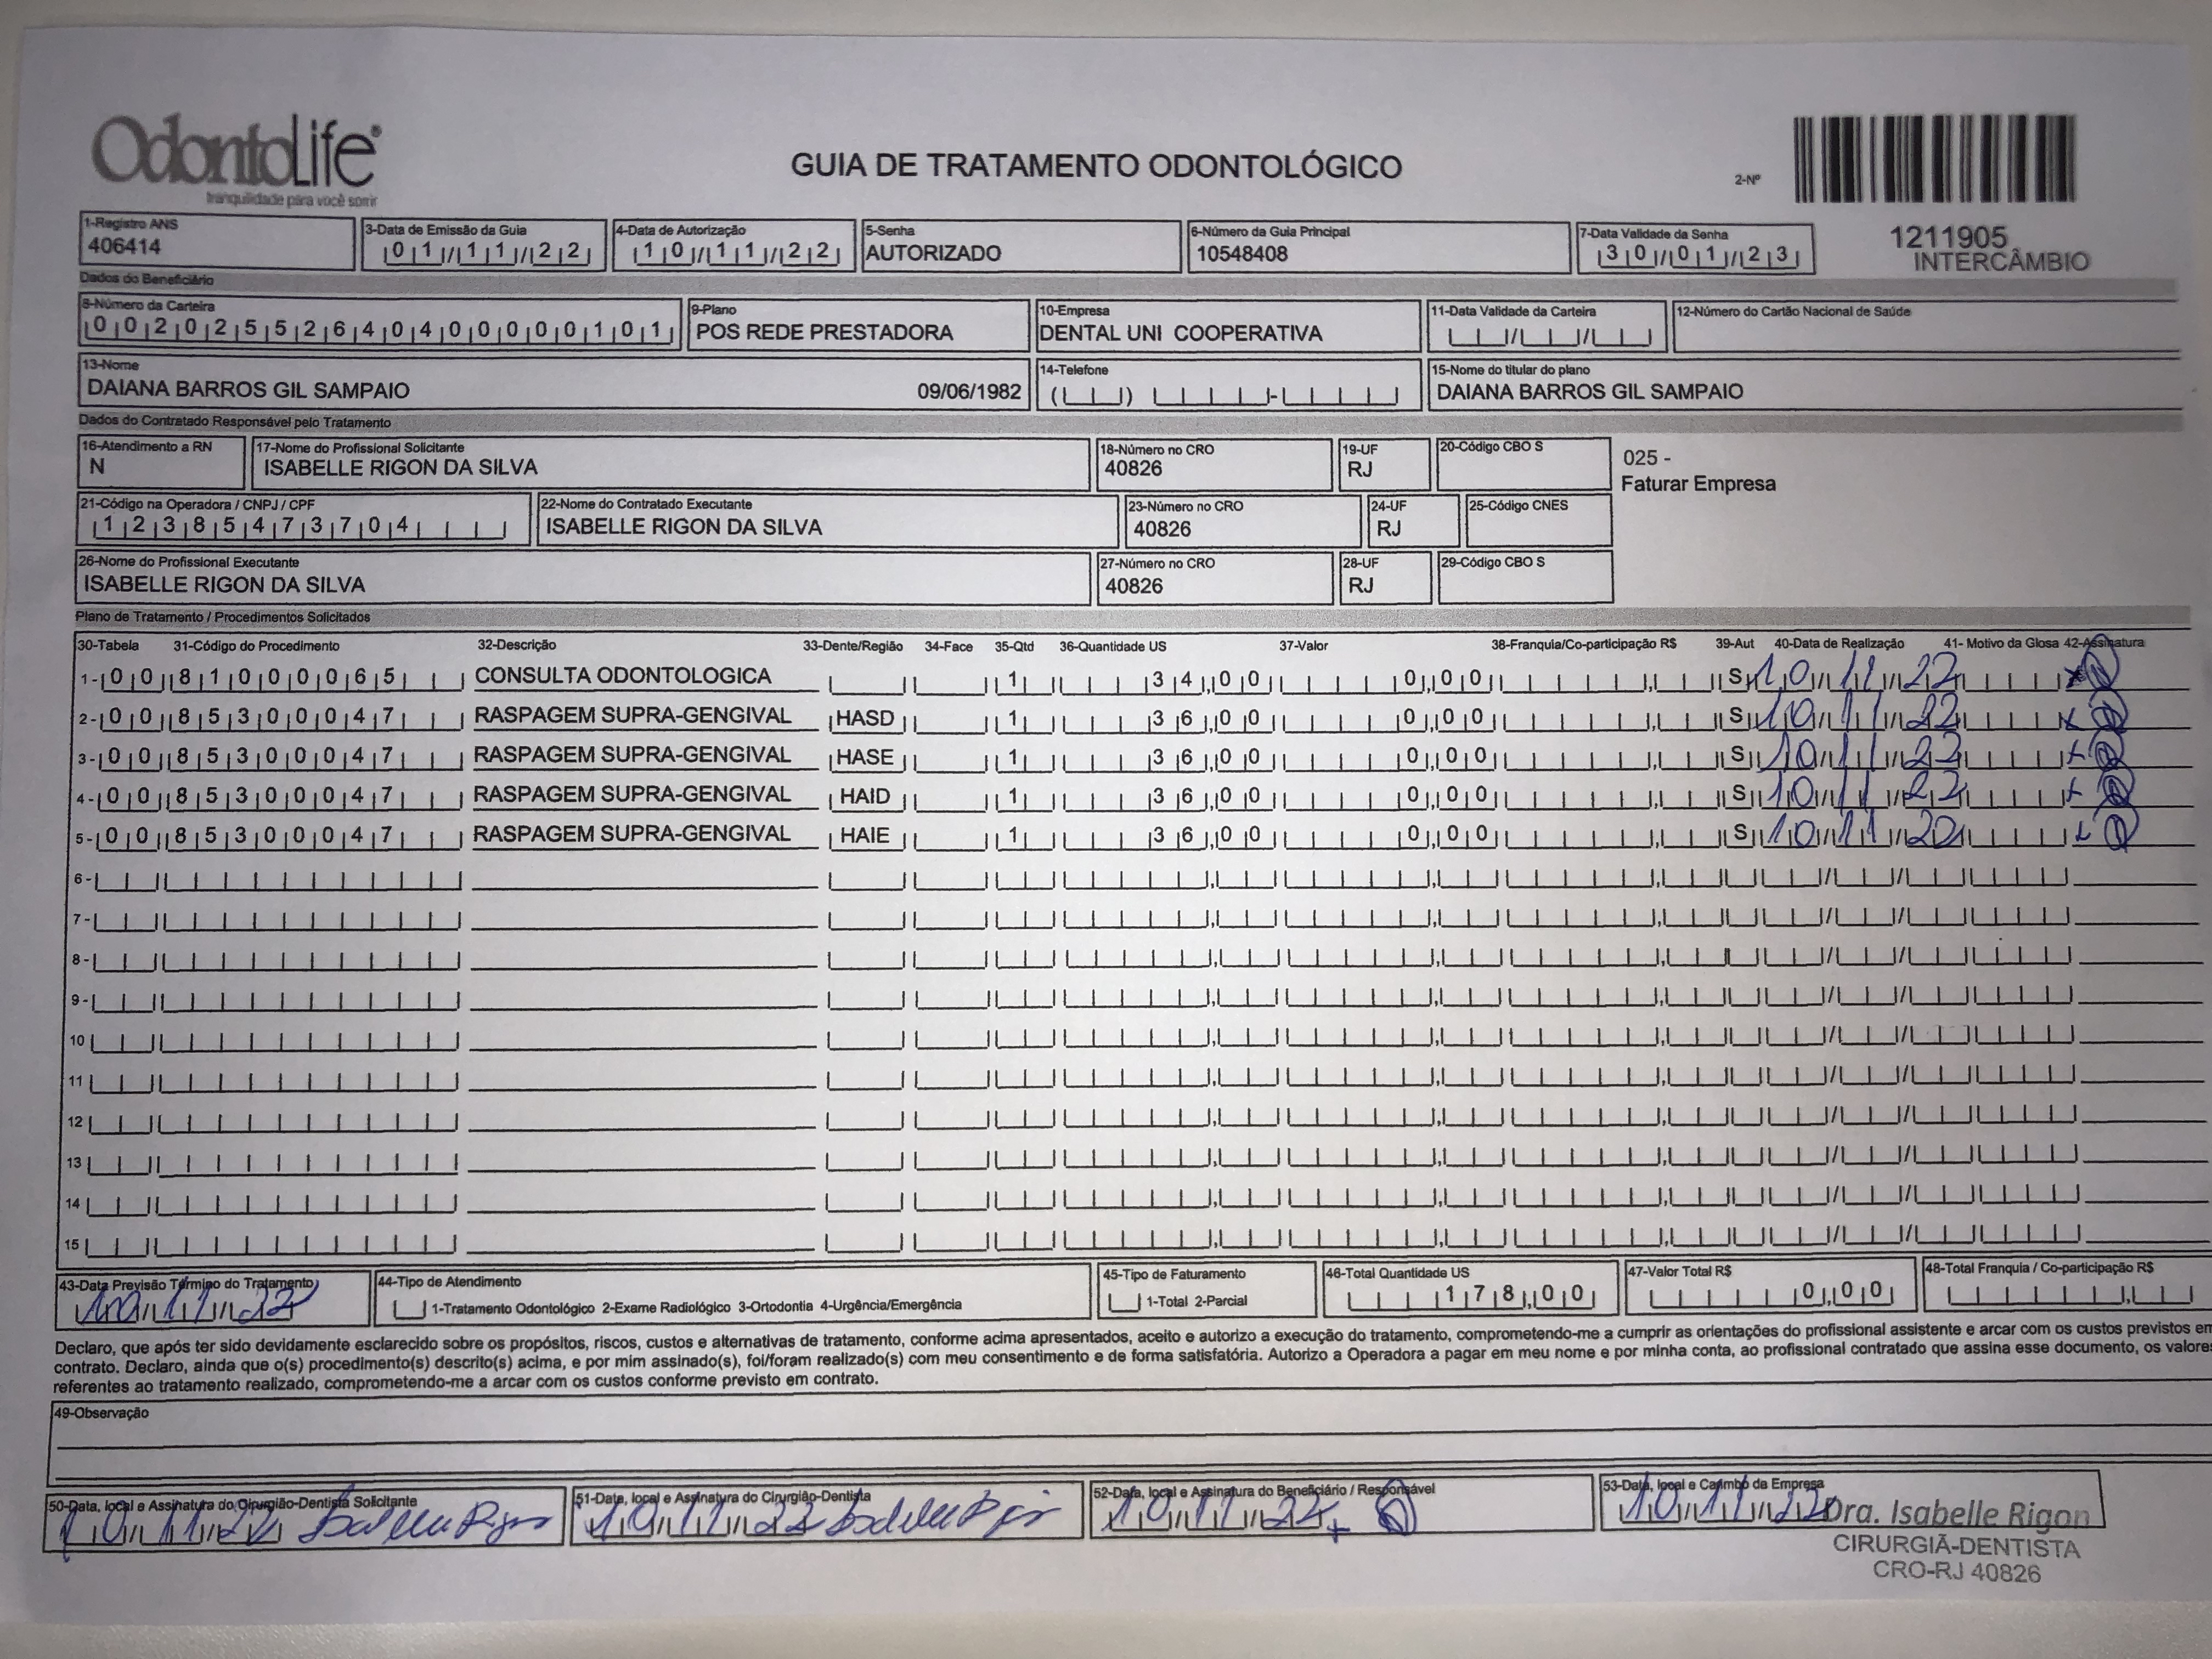 OdontoLife®
tranquilidade para você sorrir
GUIA DE TRATAMENTO ODONTOLÓGICO
2-Nº
1211905
INTERCÂMBIO
1-Registro ANS
406414
3-Data de Emissão da Guia
01/11/22
4-Data de Autorização
10/11/22
5-Senha
AUTORIZADO
6-Número da Guia Principal
10548408
7-Data Validade da Senha
30/01/23
Dados do Beneficiário
8-Número da Carteira
00202552640400000101
9-Plano
POS REDE PRESTADORA
10-Empresa
DENTAL UNI COOPERATIVA
11-Data Validade da Carteira
12-Número do Cartão Nacional de Saúde
13-Nome
DAIANA BARROS GIL SAMPAIO 09/06/1982
14-Telefone
15-Nome do titular do plano
DAIANA BARROS GIL SAMPAIO
Dados do Contratado Responsável pelo Tratamento
16-Atendimento a RN
N
17-Nome do Profissional Solicitante
ISABELLE RIGON DA SILVA
18-Número no CRO
40826
19-UF
RJ
20-Código CBO S
025 -
Faturar Empresa
21-Código na Operadora / CNPJ / CPF
12385473704
22-Nome do Contratado Executante
ISABELLE RIGON DA SILVA
23-Número no CRO
40826
24-UF
RJ
25-Código CNES
26-Nome do Profissional Executante
ISABELLE RIGON DA SILVA
27-Número no CRO
40826
28-UF
RJ
29-Código CBO S
Plano de Tratamento / Procedimentos Solicitados
30-Tabela 31-Código do Procedimento 32-Descrição 33-Dente/Região 34-Face 35-Qtd 36-Quantidade US 37-Valor 38-Franquia/Co-participação R$ 39-Aut 40-Data de Realização 41- Motivo da Glosa 42-Assinatura
1- 00 81000065 CONSULTA ODONTOLOGICA 1 34,00 0,00 S 10/11/22
2- 00 85300047 RASPAGEM SUPRA-GENGIVAL HASD 1 36,00 0,00 S 10/11/22
3- 00 85300047 RASPAGEM SUPRA-GENGIVAL HASE 1 36,00 0,00 S 10/11/22
4- 00 85300047 RASPAGEM SUPRA-GENGIVAL HAID 1 36,00 0,00 S 10/11/22
5- 00 85300047 RASPAGEM SUPRA-GENGIVAL HAIE 1 36,00 0,00 S 10/11/
6-
7-
8-
9-
10
11
12
13
14
15
43-Data Previsão Término do Tratamento
10/11/22
44-Tipo de Atendimento
1-Tratamento Odontológico 2-Exame Radiológico 3-Ortodontia 4-Urgência/Emergência
45-Tipo de Faturamento
1-Total 2-Parcial
46-Total Quantidade US
178,00
47-Valor Total R$
0,00
48-Total Franquia / Co-participação R$
Declaro, que após ter sido devidamente esclarecido sobre os propósitos, riscos, custos e alternativas de tratamento, conforme acima apresentados, aceito e autorizo a execução do tratamento, comprometendo-me a cumprir as orientações do profissional assistente e arcar com os custos previstos em
contrato. Declaro, ainda que o(s) procedimento(s) descrito(s) acima, e por mim assinado(s), foi/foram realizado(s) com meu consentimento e de forma satisfatória. Autorizo a Operadora a pagar em meu nome e por minha conta, ao profissional contratado que assina esse documento, os valores
referentes ao tratamento realizado, comprometendo-me a arcar com os custos conforme previsto em contrato.
49-Observação
50-Data, local e Assinatura do Cirurgião-Dentista Solicitante
10/11/22
51-Data, local e Assinatura do Cirurgião-Dentista
10/11/22
52-Data, local e Assinatura do Beneficiário / Responsável
10/11/22
53-Data, local e Carimbo da Empresa
10/11/22
Dra. Isabelle Rigon
CIRURGIÃ-DENTISTA
CRO-RJ 40826